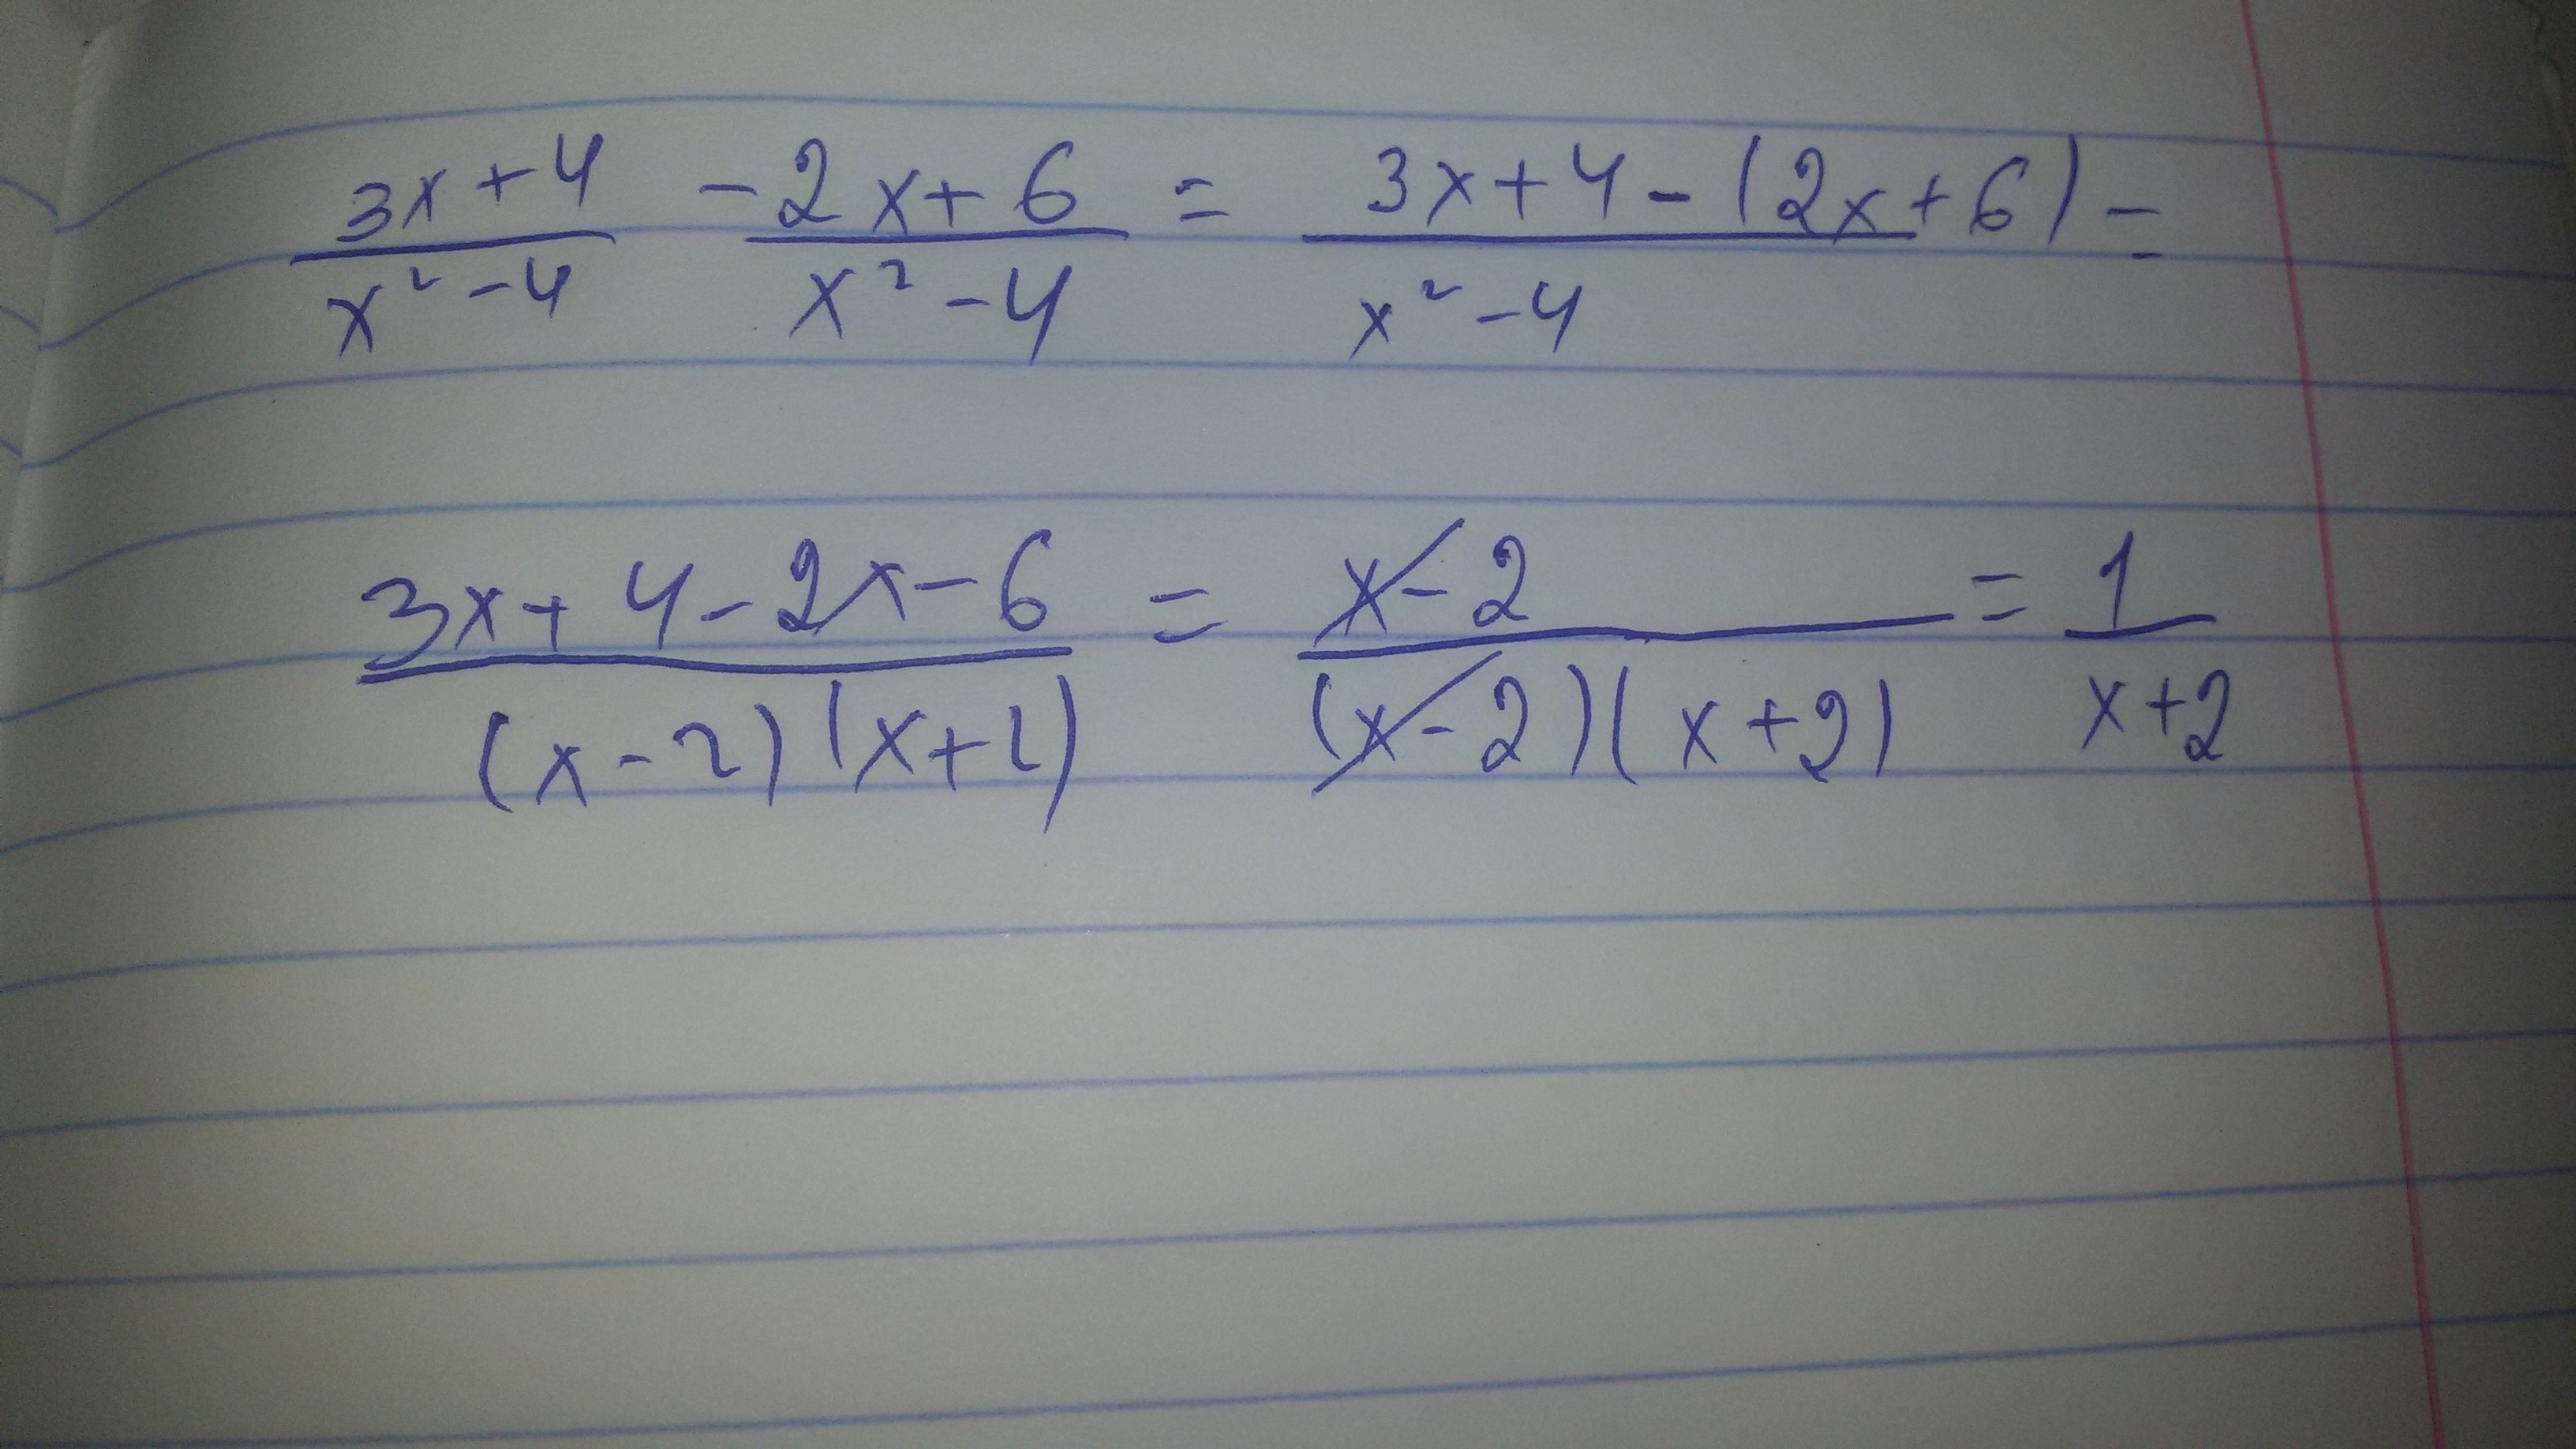 (3x+4)/(x²-4) - (2x+6)/(x²-4) = (3x+4-(2x+6))/(x²-4) =
(3x+4-2x-6)/((x-2)(x+2)) = (x-2)/((x-2)(x+2)) = 1/(x+2)